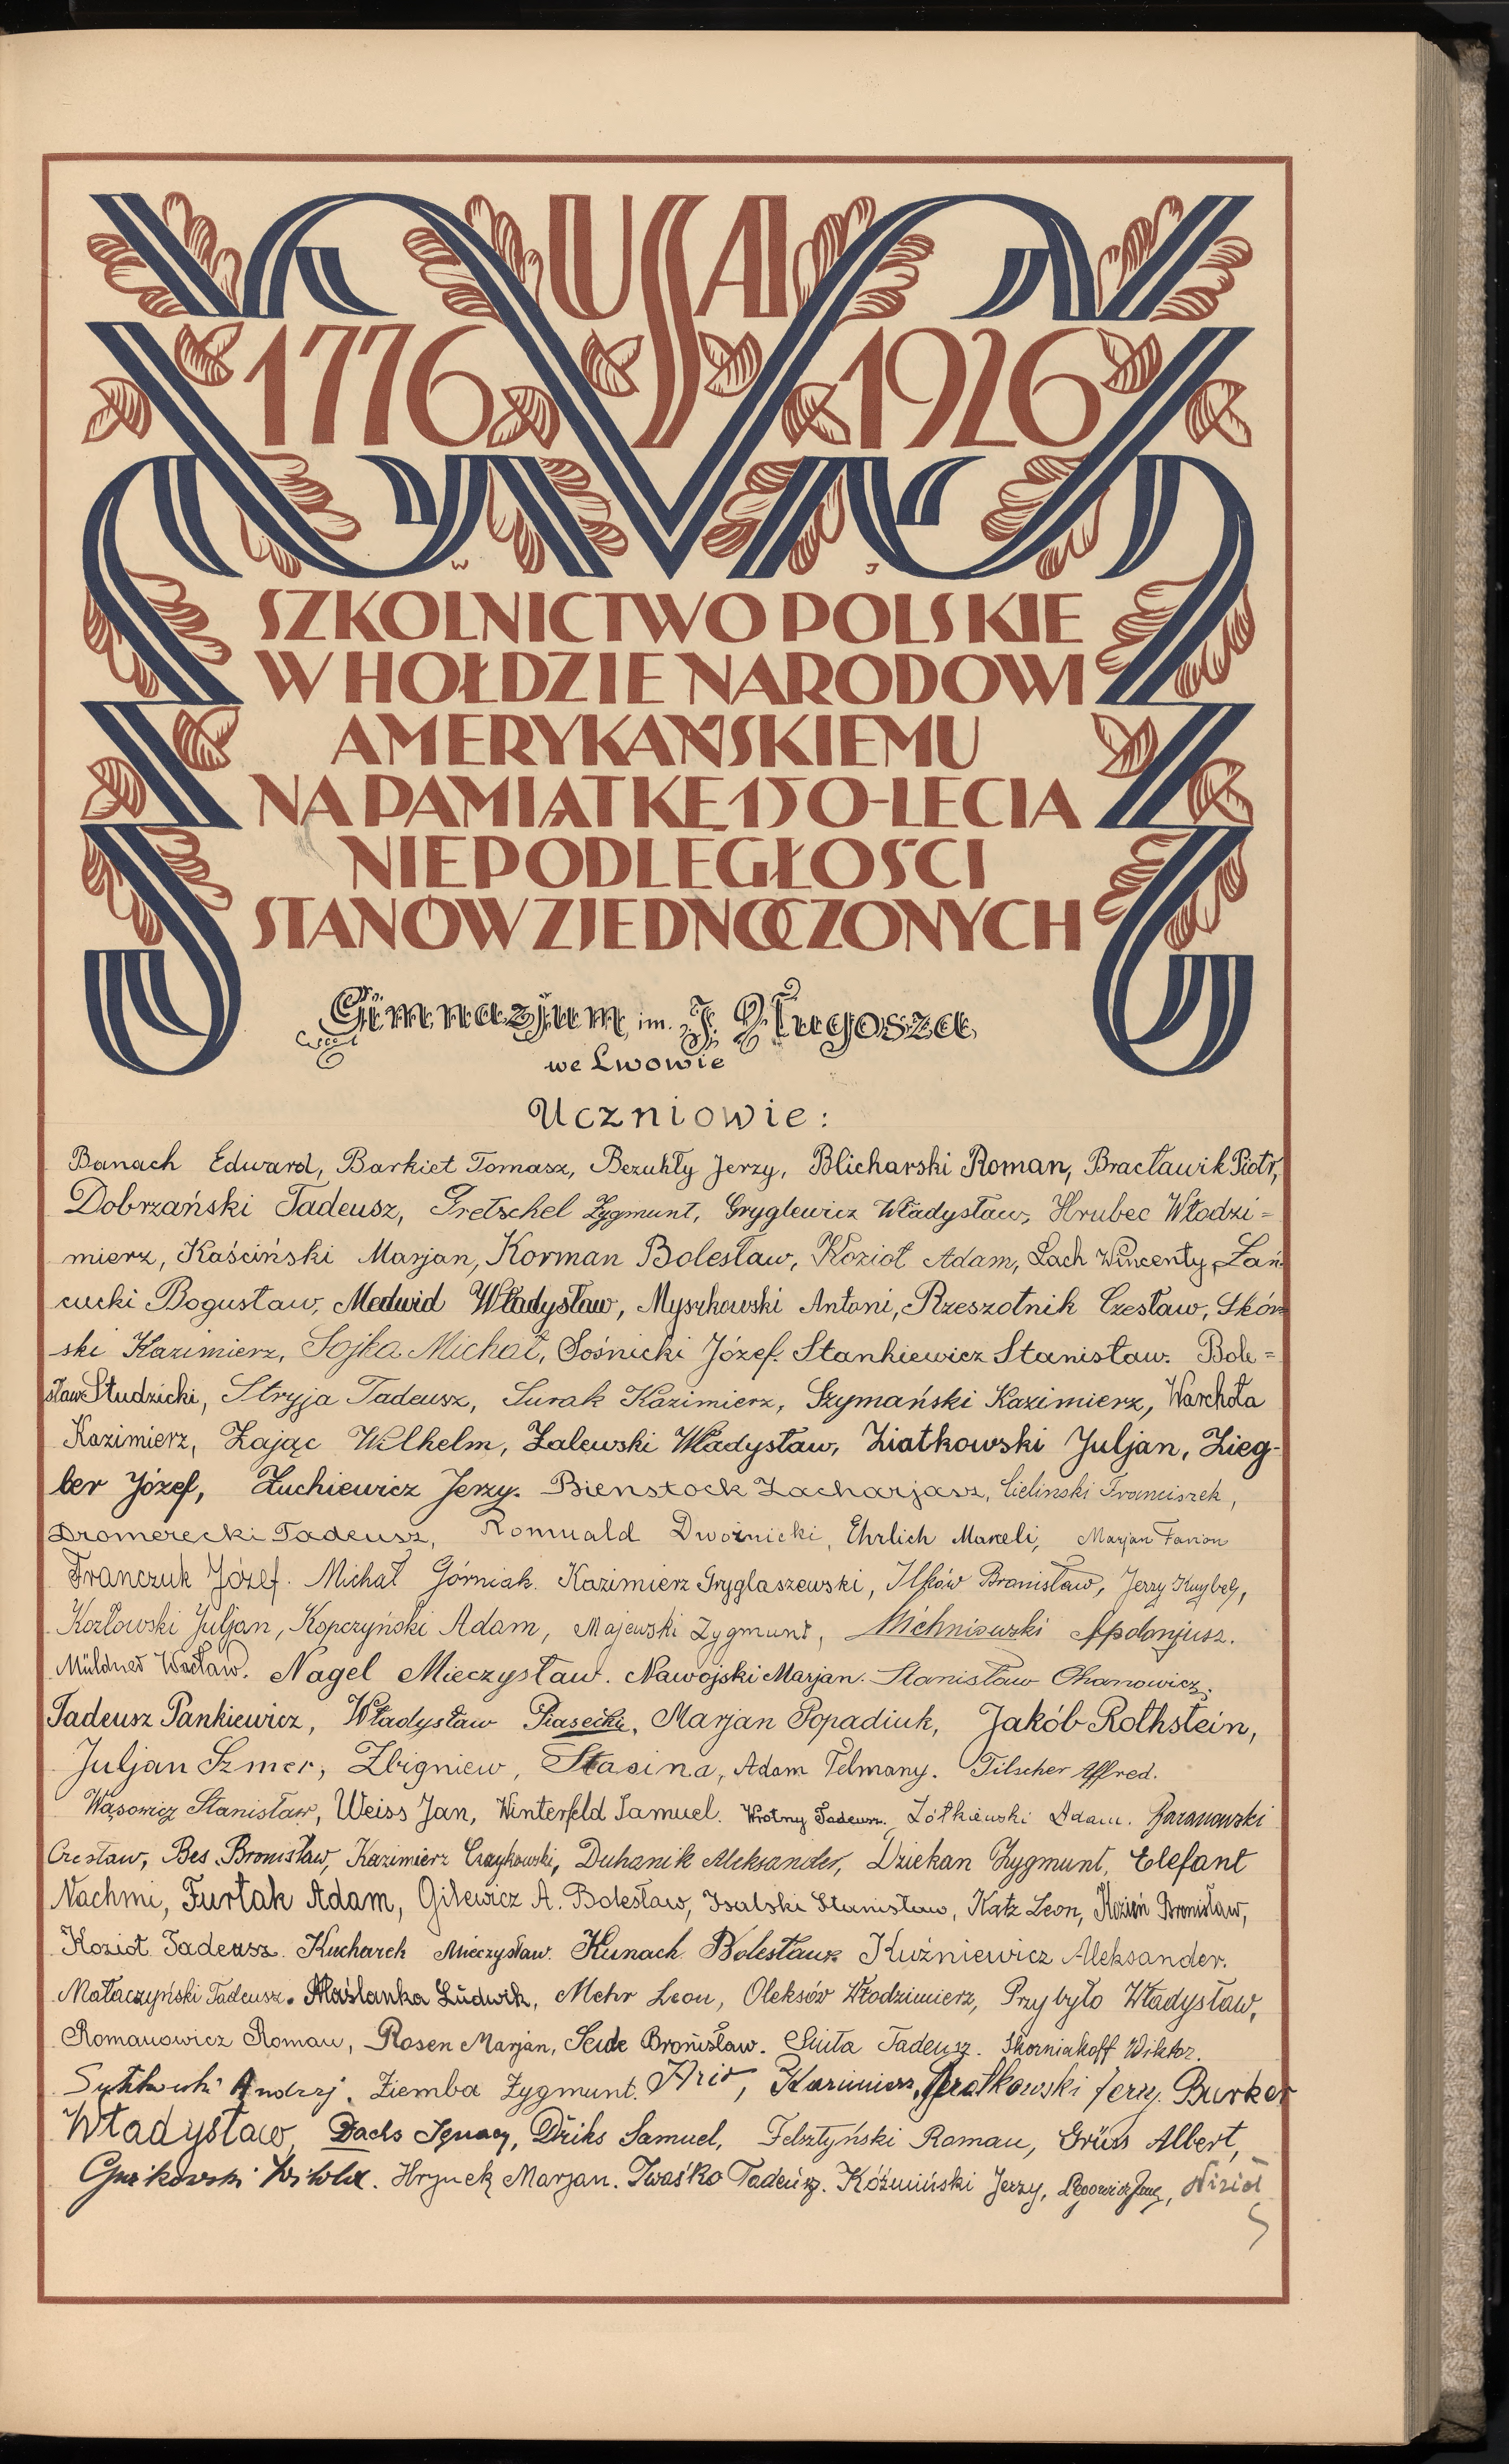 USA
1776 1926
W J
SZKOLNICTWO POLSKIE
W HOŁDZIE NARODOWI
AMERYKAŃSKIEMU
NA PAMIĄTKĘ 150-LECIA
NIEPODLEGŁOŚCI
STANÓW ZJEDNOCZONYCH
Gimnazjum im. J. Długosza
we Lwowie
Uczniowie:
Banach Edward, Barkiet Tomasz, Bezuhły Jerzy, Blicharski Roman, Bracławik Piotr,
Dobrzański Tadeusz, Gretschel Zygmunt, Gryglewicz Władysław, Hrubec Włodzi=
mierz, Kaściński Marjan, Korman Bolesław, Kozioł Adam, Lach Wincenty, Łań-
cucki Bogusław, Medwid Władysław, Myszkowski Antoni, Rzeszotnik Czesław, Skór
ski Kazimierz, Sojka Michał, Sośnicki Józef. Stankiewicz Stanisław. Bole=
sław Studzicki, Stryja Tadeusz, Surak Kazimierz, Szymański Kazimierz, Warchoła
Kazimierz, Zając Wilhelm, Zalewski Władysław, Ziatkowski Juljan, Zieg-
ler Józef, Żuchiewicz Jerzy. Bienstock Zacharjasz, Cieliński Franciszek,
Dromerecki Tadeusz, Romuald Dwoźnicki, Ehrlich Maneli, Marjan Farion
Franczuk Józef. Michał Górniak. Kazimierz Gryglaszewski, Ilków Bronisław, Jerzy
Kozłowski Juljan, Kopczyński Adam, Majewski Zygmunt, Michniewski Apolonjusz.
Müldner Wacław. Nagel Mieczysław. Nawojski Marjan. Stanisław Ohanowicz.
Tadeusz Pankiewicz, Władysław Piasecki, Marjan Popadiuk, Jakób Rothstein,
Juljan Szmer, Zbigniew, Stasina, Adam Telmany. Tilscher Alfred.
Wąsowicz Stanisław, Weiss Jan, Winterfeld Samuel. Wrotny Tadeusz. Żółkiewski Adam. Baranowski
Czesław, Bes Bronisław, Kazimierz Czaykowski, Duhanik Aleksander, Dziekan Zygmunt, Elefant
Nachmi, Furtak Adam, Gilewicz A. Bolesław, Isalski Stanisław, Katz Leon, Kozień Bronisław,
Kozioł Tadeusz. Kucharek Mieczysław. Kunach Bolesław. Kuźniewicz Aleksander.
Małaczyński Tadeusz. Maślanka Ludwik, Mehr Leon, Oleksów Włodzimierz, Przybyło Władysław,
Romanowicz Roman, Rosen Marjan, Seide Bronisław. Siuta Tadeusz. Skorniakoff Wiktor.
Andrzej. Ziemba Zygmunt. Kazimierz, Jerzy. Burker
Władysław, Dachs Ignacy, Driks Samuel, Felsztyński Roman, Grüss Albert,
Witold. Hrynek Marjan. Iwaśko Tadeusz. Kóźmiński Jerzy,